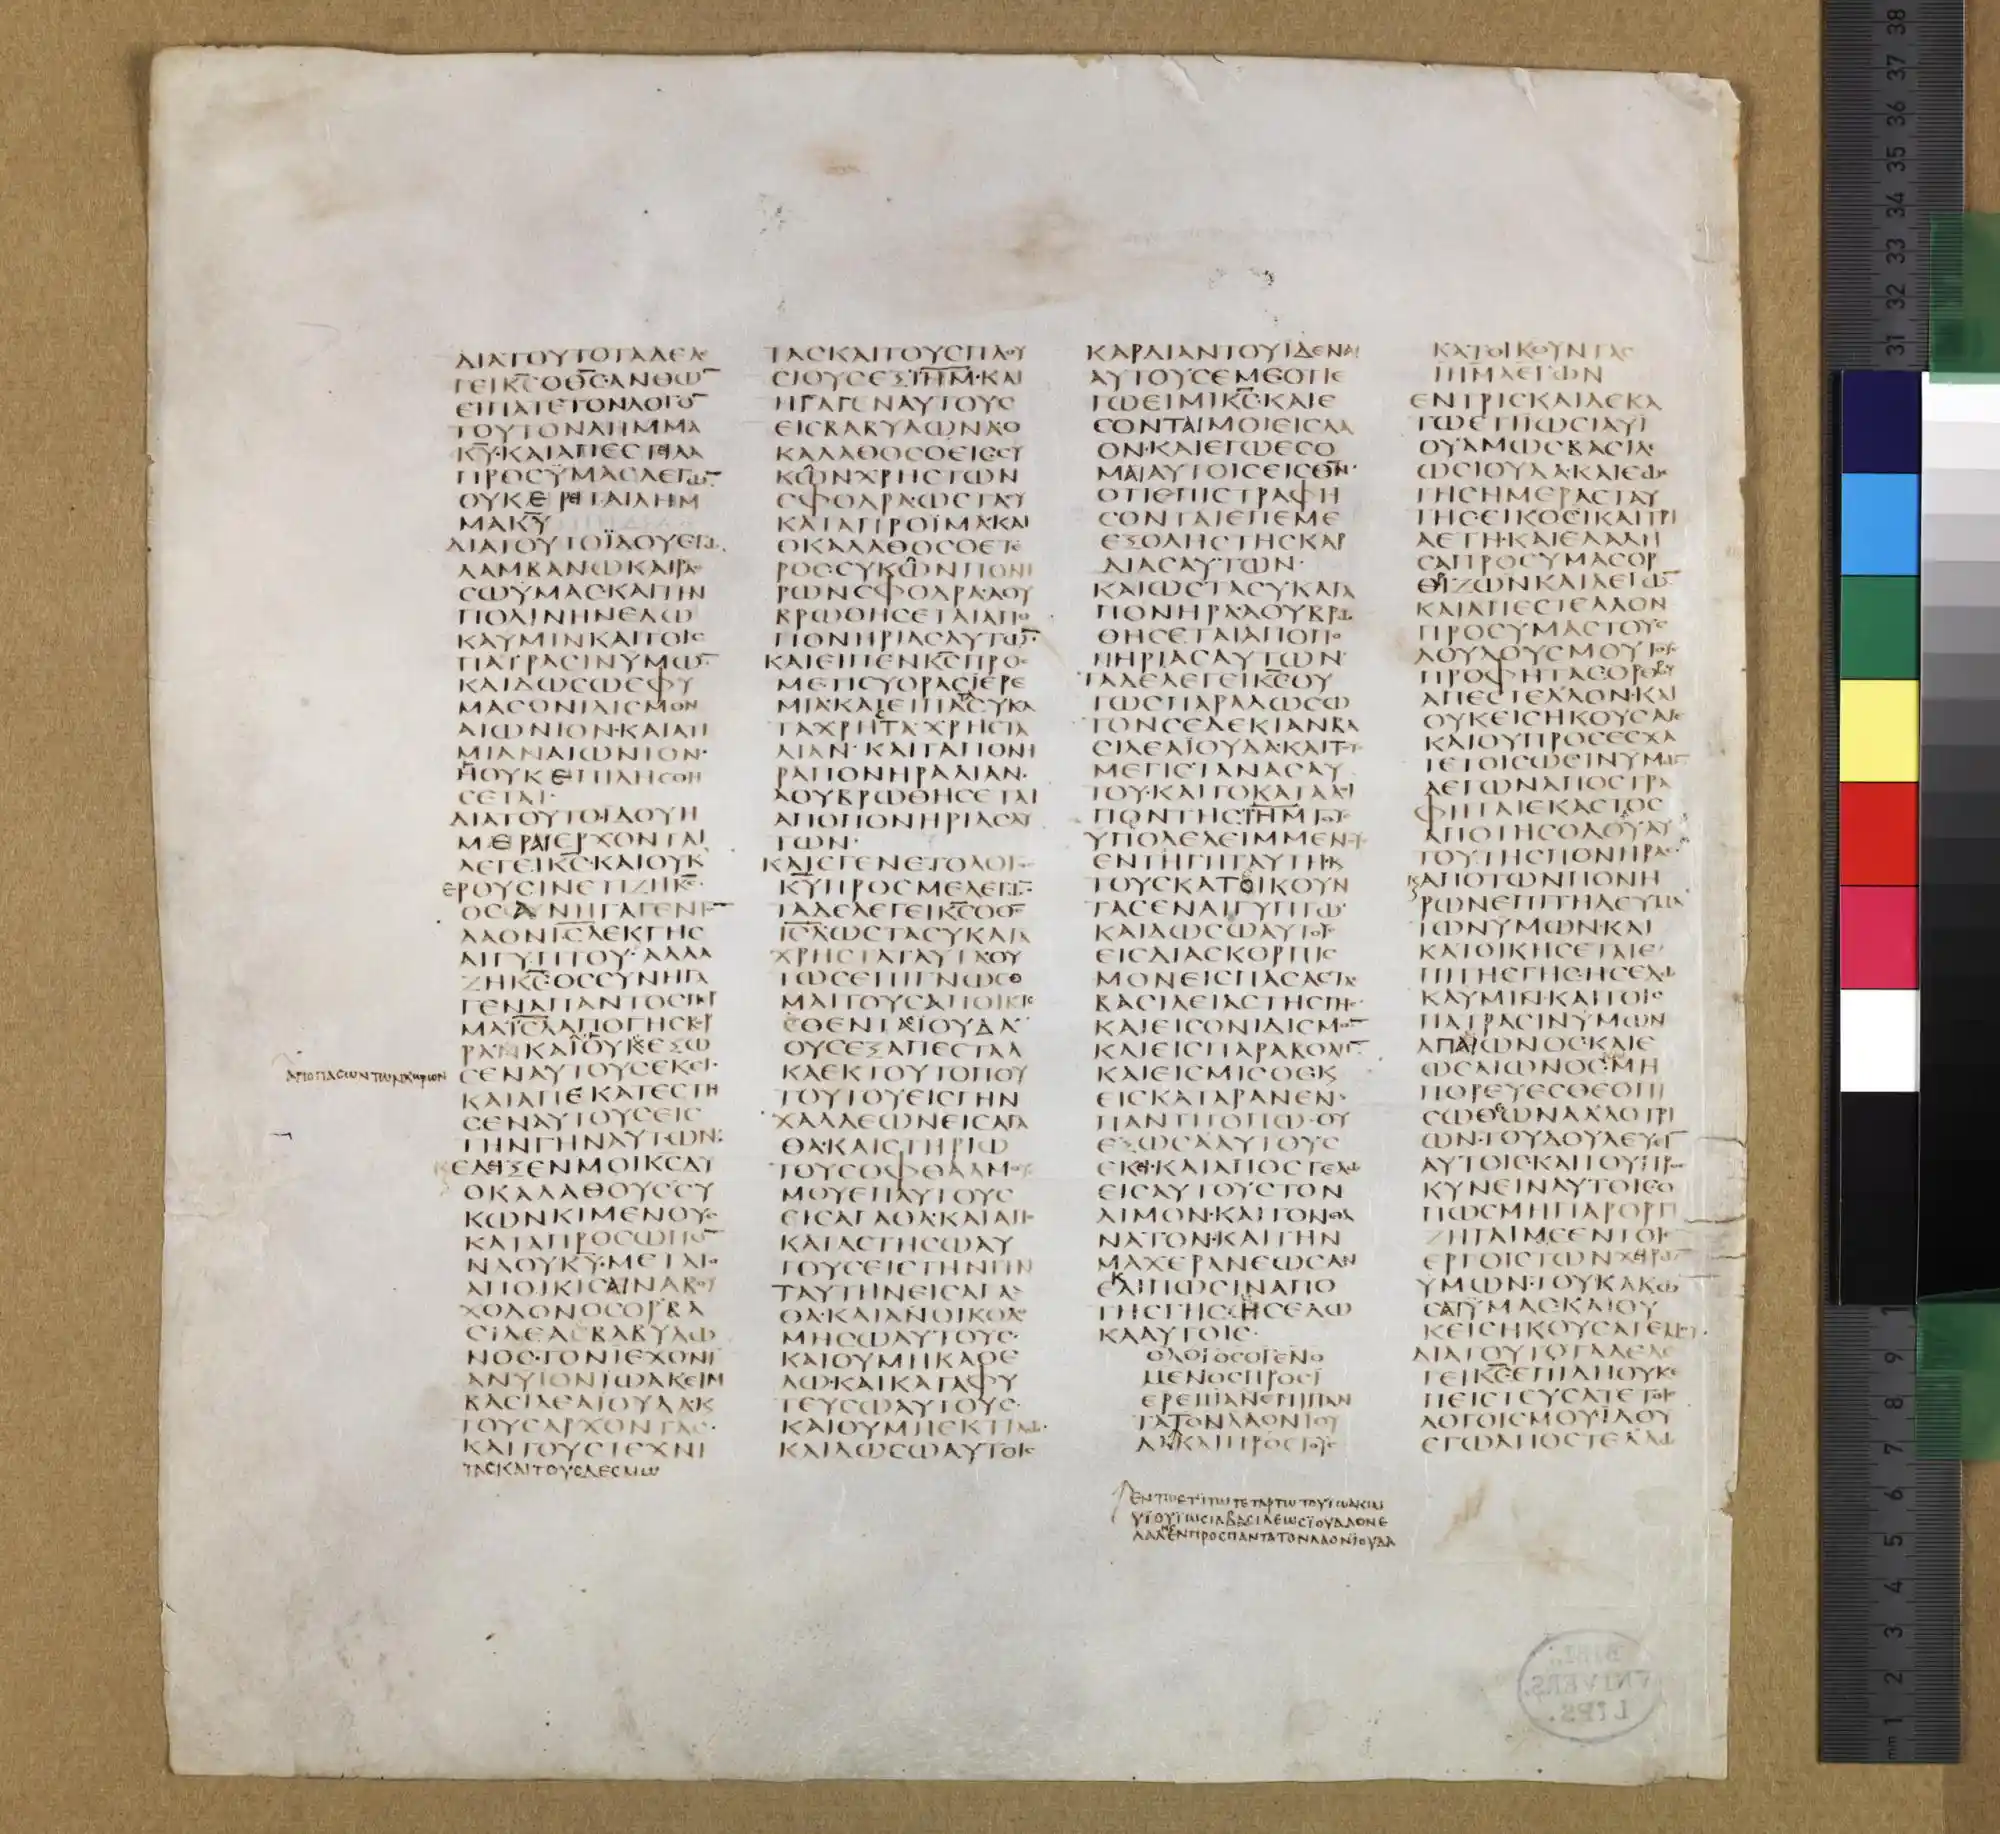 ΔΙΑΤΟΥΤΟΤΑΔΕΛΕ
ΓΕΙΚ̅Ϲ̅ΟΘ̅Ϲ̅·ΑΝΘΩ̅
ΕΙΠΑΤΕΤΟΝΛΟΓΟ̅
ΤΟΥΤΟΝΛΗΜΜΑ
Κ̅Υ̅·ΚΑΙΑΠΕϹΤΙΛΑ
ΠΡΟϹΫΜΑϹΛΕΓΩ̅·
ΟΥΚΕΡΕΙΤΑΙΛΗΜ
ΜΑΚ̅Υ̅
ΔΙΑΤΟΥΤΟΪΔΟΥΕΓΩ
ΛΑΜΒΑΝΩΚΑΙΡΑϹ
ϹΩΫΜΑϹ·ΚΑΙΤΗΝ
ΠΟΛΙΝΗΝΕΔΩ
ΚΑΥΜΙΝΚΑΙΤΟΙϹ
ΠΑΤΡΑϹΙΝΫΜΩ̅·
ΚΑΙΔΩϹΩΕΦΥ
ΜΑϹΟΝΙΔΙϹΜΟΝ
ΑΙΩΝΙΟΝ·ΚΑΙΑΤΙ
ΜΙΑΝΑΙΩΝΙΟΝ·
ΗΟΥΚΕΠΙΛΗϹΘΗ
ϹΕΤΑΙ·
ΔΙΑΤΟΥΤΟΙΔΟΥΗ
ΜΕΡΑΙΕΡΧΟΝΤΑΙ
ΛΕΓΕΙΚ̅Ϲ̅·ΚΑΙΟΥΚ
ΕΡΟΥϹΙΝΕΤΙΖΗΚ̅Ϲ̅·
ΟϹΑΝΗΓΑΓΕΝΤΟ̅
ΛΑΟΝΙ̅Ϲ̅Λ̅ΕΚΓΗϹ
ΑΙΓΥΠΤΟΥ·ΑΛΛΑ
ΖΗΚ̅Ϲ̅·ΟϹϹΥΝΗΓΑ
ΓΕΝΑΠΑΝΤΟϹΠΕΡ
ΜΑΙ̅Ϲ̅Λ̅ΑΠΟΓΗϹΒΟΡ
ΡΑΝΚΑΙΟΥΚΕΞΩ
ΑΠΟΠΑϹΩΝΤΩΝΧΩΡΙΩΝ
ϹΕΝΑΥΤΟΥϹΕΚΕΙ·
ΚΑΙΑΠΕΚΑΤΕϹΤΗ
ϹΕΝΑΥΤΟΥϹΕΙϹ
ΤΗΝΓΗΝΑΥΤΩΝ:
ΕΔΙΞΕΝΜΟΙΚ̅Ϲ̅ΔΥ
ΟΚΑΛΑΘΟΥϹϹΥ
ΚΩΝΚΙΜΕΝΟΥϹ
ΚΑΤΑΠΡΟϹΩΠΟ̅
ΝΑΟΥΚ̅Υ̅·ΜΕΤΑΤΟ
ΑΠΟΙΚΙϹΑΙΝΑΒΟΥ
ΧΟΔΟΝΟϹΟΡΒΑ
ϹΙΛΕΑΒΑΒΥΛΩ
ΝΟϹ·ΤΟΝΙΕΧΟΝΙ
ΑΝΥΙΟΝΙΩΑΚΕΙΜ
ΒΑϹΙΛΕΑΙΟΥΔΑΚ
ΤΟΥϹΑΡΧΟΝΤΑϹ·
ΚΑΙΤΟΥϹΤΕΧΝΙ
ΤΑϹΚΑΙΤΟΥϹΔΕϹΜΩ
ΤΑϹΚΑΙΤΟΥϹΠΛΟΥ
ϹΙΟΥϹΕΞΙ̅Η̅Μ̅·ΚΑΙ
ΗΓΑΓΕΝΑΥΤΟΥϹ
ΕΙϹΒΑΒΥΛΩΝΑΟ
ΚΑΛΑΘΟϹΟΕΙϹϹΥ
ΚΩΝΧΡΗϹΤΩΝ
ϹΦΟΔΡΑ·ΩϹΤΑϹΥ
ΚΑΤΑΠΡΟΪΜΑ·ΚΑΙ
ΟΚΑΛΑΘΟϹΟΕΤΕ
ΡΟϹϹΥΚΩΝΠΟΝΗ
ΡΩΝϹΦΟΔΡΑ·ΑΟΥ
ΒΡΩΘΗϹΕΤΑΙΑΠΟ
ΠΟΝΗΡΙΑϹΑΥΤΩ̅·
ΚΑΙΕΙΠΕΝΚ̅Ϲ̅ΠΡΟϹ
ΜΕ·ΤΙϹΥΟΡΑϹΙΕΡΕ
ΜΙΑ·ΚΑΙΕΙΠΑϹΥΚΑ
ΤΑΧΡΗϹΤΑ·ΧΡΗϹΤΑ
ΛΙΑΝ·ΚΑΙΤΑΠΟΝΗ
ΡΑΠΟΝΗΡΑΛΙΑΝ·
ΑΟΥΒΡΩΘΗϹΕΤΑΙ
ΑΠΟΠΟΝΗΡΙΑϹΑΥ
ΤΩΝ·
ΚΑΙΕΓΕΝΕΤΟΛΟΓΟϹ
Κ̅Υ̅ΠΡΟϹΜΕΛΕΓΩ̅:
ΤΑΔΕΛΕΓΕΙΚ̅Ϲ̅ΟΘ̅Ϲ̅
Ι̅Ϲ̅Λ̅ΩϹΤΑϹΥΚΑΤΑ
ΧΡΗϹΤΑΤΑΥΤΑΟΥ
ΤΩϹΕΠΙΓΝΩϹΟ
ΜΑΙΤΟΥϹΑΠΟΙΚΙϹ
ΘΕΝΤΑϹΙΟΥΔΑ
ΟΥϹΕΞΑΠΕϹΤΑΛ
ΚΑΕΚΤΟΥΤΟΠΟΥ
ΤΟΥΤΟΥΕΙϹΓΗΝ
ΧΑΛΔΕΩΝΕΙϹΑΓΑ
ΘΑ·ΚΑΙϹΤΗΡΙΩ
ΤΟΥϹΟΦΘΑΛΜΟΥϹ
ΜΟΥΕΠΑΥΤΟΥϹ
ΕΙϹΑΓΑΘΑ·ΚΑΙΑΠΟ
ΚΑΤΑϹΤΗϹΩΑΥ
ΤΟΥϹΕΙϹΤΗΝΓΗΝ
ΤΑΥΤΗΝΕΙϹΑΓΑ
ΘΑ·ΚΑΙΑΝΟΙΚΟΔΟ
ΜΗϹΩΑΥΤΟΥϹ·
ΚΑΙΟΥΜΗΚΑΘΕ
ΛΩ·ΚΑΙΚΑΤΑΦΥ
ΤΕΥϹΩΑΥΤΟΥϹ·
ΚΑΙΟΥΜΗΕΚΤΙΛΩ·
ΚΑΙΔΩϹΩΑΥΤΟΙϹ
ΚΑΡΔΙΑΝΤΟΥΪΔΕΝΑΙ
ΑΥΤΟΥϹΕΜΕΟΤΙΕ
ΓΩΕΙΜΙΚ̅Ϲ̅·ΚΑΙΕ
ϹΟΝΤΑΙΜΟΙΕΙϹΛΑ
ΟΝ·ΚΑΙΕΓΩΕϹΟ
ΜΑΙΑΥΤΟΙϹΕΙϹΘ̅Ν̅·
ΟΤΙΕΠΙϹΤΡΑΦΗ
ϹΟΝΤΑΙΕΠΕΜΕ
ΕΞΟΛΗϹΤΗϹΚΑΡ
ΔΙΑϹΑΥΤΩΝ·
ΚΑΙΩϹΤΑϹΥΚΑΤΑ
ΠΟΝΗΡΑ·ΑΟΥΒΡΩ
ΘΗϹΕΤΑΙΑΠΟΠΟ
ΝΗΡΙΑϹΑΥΤΩΝ·
ΤΑΔΕΛΕΓΕΙΚ̅Ϲ̅ΟΥ
ΤΩϹΠΑΡΑΔΩϹΩ
ΤΟΝϹΕΔΕΚΙΑΝΒΑ
ϹΙΛΕΑΪΟΥΔΑ·ΚΑΙΤΟΥϹ
ΜΕΓΙϹΤΑΝΑϹΑΥ
ΤΟΥ·ΚΑΙΤΟΚΑΤΑΛΟΙ
ΠΟΝΤΗϹΙ̅Η̅Μ̅ΤΟΥϹ
ΥΠΟΛΕΛΕΙΜΜΕΝΟΥϹ
ΕΝΤΗΓΗΤΑΥΤΗ·Κ
ΤΟΥϹΚΑΤΟΙΚΟΥΝ
ΤΑϹΕΝΑΙΓΥΠΤΩ·
ΚΑΙΔΩϹΩΑΥΤΟΥϹ
ΕΙϹΔΙΑϹΚΟΡΠΙϹ
ΜΟΝΕΙϹΠΑϹΑϹΤΑϹ
ΒΑϹΙΛΕΙΑϹΤΗϹΓΗϹ·
ΚΑΙΕΙϹΟΝΙΔΙϹΜΟ̅
ΚΑΙΕΙϹΠΑΡΑΒΟΛΗ̅·
ΚΑΙΕΙϹΜΙϹΟϹΚ
ΕΙϹΚΑΤΑΡΑΝΕΝ
ΠΑΝΤΙΤΟΠΩ·ΟΥ
ΕΞΩϹΑΑΥΤΟΥϹ
ΕΚΕΙ·ΚΑΙΑΠΟϹΤΕΛΩ
ΕΙϹΑΥΤΟΥϹΤΟΝ
ΛΙΜΟΝ·ΚΑΙΤΟΝΘΑ
ΝΑΤΟΝ·ΚΑΙΤΗΝ
ΜΑΧΕΡΑΝΕΩϹΑΝ
ΕΚΛΙΠΩϹΙΝΑΠΟ
ΤΗϹΓΗϹΗϹΕΔΩ
ΚΑΑΥΤΟΙϹ·
ΟΛΟΓΟϹΟΓΕΝΟ
ΜΕΝΟϹΠΡΟϹΙ
ΕΡΕΜΙΑΝΕΠΙΠΑΝ
ΤΑΤΟΝΛΑΟΝΙΟΥ
ΔΑΚΑΙΠΡΟϹΤΟΥϹ
ΕΝΤΩΕΤΙΤΩΤΕΤΑΡΤΩΤΟΥΙΩΑΚΙΜ
ΥΙΟΥΙΩϹΙΑΒΑϹΙΛΕΩϹΙΟΥΔΑΟΝΕ
ΛΑΛΗϹΕΝΠΡΟϹΠΑΝΤΑΤΟΝΛΑΟΝΙΟΥΔΑ
ΚΑΤΟΙΚΟΥΝΤΑϹ
Ι̅Η̅Μ̅ΛΕΓΩΝ
ΕΝΤΡΙϹΚΑΙΔΕΚΑ
ΤΩΕΤΙΪΩϹΙΑΥΪ
ΟΥΑΜΩϹΒΑϹΙΛΕ
ΩϹΙΟΥΔΑ·ΚΑΙΕΩϹ
ΤΗϹΗΜΕΡΑϹΤΑΥ
ΤΗϹΕΙΚΟϹΙΚΑΙΤΡΙ
ΑΕΤΗ·ΚΑΙΕΛΑΛΗ
ϹΑΠΡΟϹΥΜΑϹΟΡ
ΘΡΙΖΩΝΚΑΙΛΕΓΩ̅
ΚΑΙΑΠΕϹΤΕΛΛΟΝ
ΠΡΟϹΥΜΑϹΤΟΥϹ
ΔΟΥΛΟΥϹΜΟΥΤΟΥϹ
ΠΡΟΦΗΤΑϹΟΡΘΡΟΥ
ΑΠΕϹΤΕΛΛΟΝ·ΚΑΙ
ΟΥΚΕΙϹΗΚΟΥϹΑΤΕ
ΚΑΙΟΥΠΡΟϹΕϹΧΑ
ΤΕΤΟΙϹΩϹΙΝΥΜΩ̅
ΛΕΓΩΝΑΠΟϹΤΡΑ
ΦΗΤΑΙΕΚΑϹΤΟϹ
ΑΠΟΤΗϹΟΔΟΥΑΥ
ΤΟΥΤΗϹΠΟΝΗΡΑϹ·
ΚΑΠΟΤΩΝΠΟΝΗ
ΡΩΝΕΠΙΤΗΔΕΥΜΑ
ΤΩΝΥΜΩΝ·ΚΑΙ
ΚΑΤΟΙΚΗϹΕΤΑΙΕ
ΠΙΤΗϹΓΗϹ·ΗϹΕΔΩ
ΚΑΥΜΙΝ·ΚΑΙΤΟΙϹ
ΠΑΤΡΑϹΙΝΫΜΩΝ
ΑΠΑΙΩΝΟϹ·ΚΑΙΕ
ΩϹΑΙΩΝΟϹ·ΜΗ
ΠΟΡΕΥΕϹΘΕΟΠΙ
ϹΩΘΕΩΝΑΛΛΟΤΡΙ
ΩΝ·ΤΟΥΔΟΥΛΕΥΕΙ̅
ΑΥΤΟΙϹ·ΚΑΙΤΟΥΠΡΟϹ
ΚΥΝΕΙΝΑΥΤΟΙϹΟ
ΠΩϹΜΗΠΑΡΟΡΓΙ
ΖΗΤΑΙΜΕΕΝΤΟΙϹ
ΕΡΓΟΙϹΤΩΝΧΕΙΡΩ̅
ΥΜΩΝ·ΤΟΥΚΑΚΩ
ϹΑΙΫΜΑϹ·ΚΑΙΟΥ
ΚΕΙϹΗΚΟΥϹΑΤΕΜΟΥ·
ΔΙΑΤΟΥΤΟΤΑΔΕΛΕ
ΓΕΙΚ̅Ϲ̅ΕΠΙΔΗΟΥΚΕ
ΠΕΙϹΤΕΥϹΑΤΕΤΟΙϹ
ΛΟΓΟΙϹΜΟΥ·ΙΔΟΥ
ΕΓΩΑΠΟϹΤΕΛΛΩ
BIBL.
VNIVERS.
LIPS.